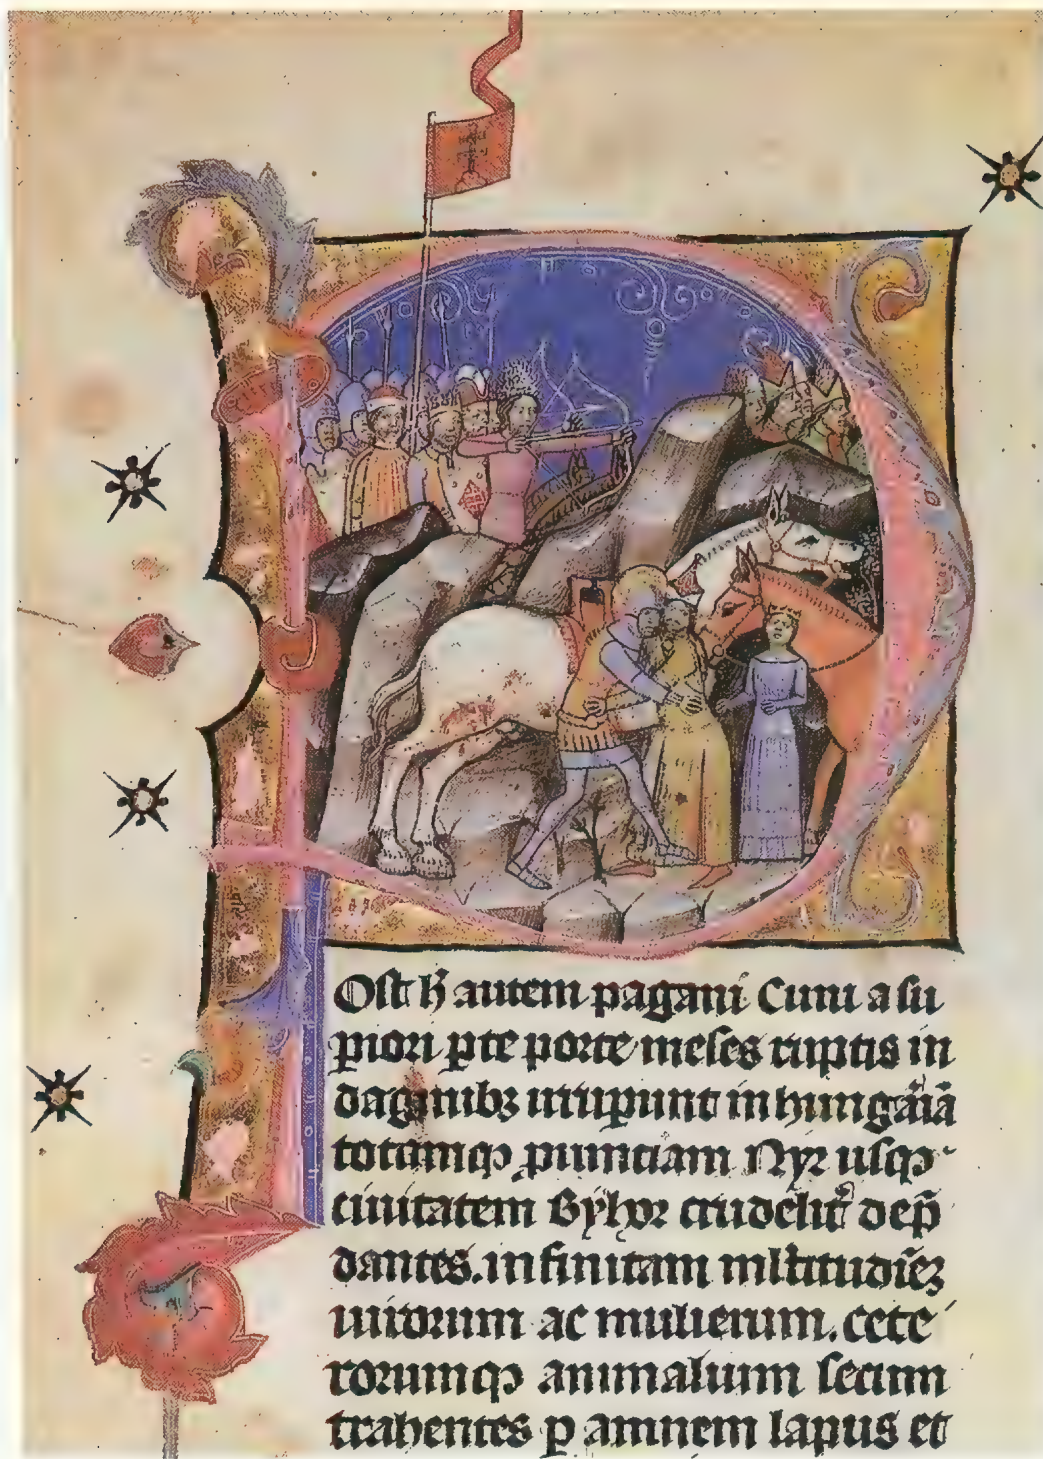 Ost h̄ autem pagani Cuni a su
piori p̱te porte meses ruptis in
daginibꝫ irrupunt in hungariā
totamqꝫ ꝓuinciam Nyr usqꝫ
ciuitatem Byhor crudelit̄ dep̄
dantes. infinitam mltitudīeꝫ
uirorum ac mulierum. cete
rorumqꝫ animalium secum
trahentes ꝑ amnem lapus et